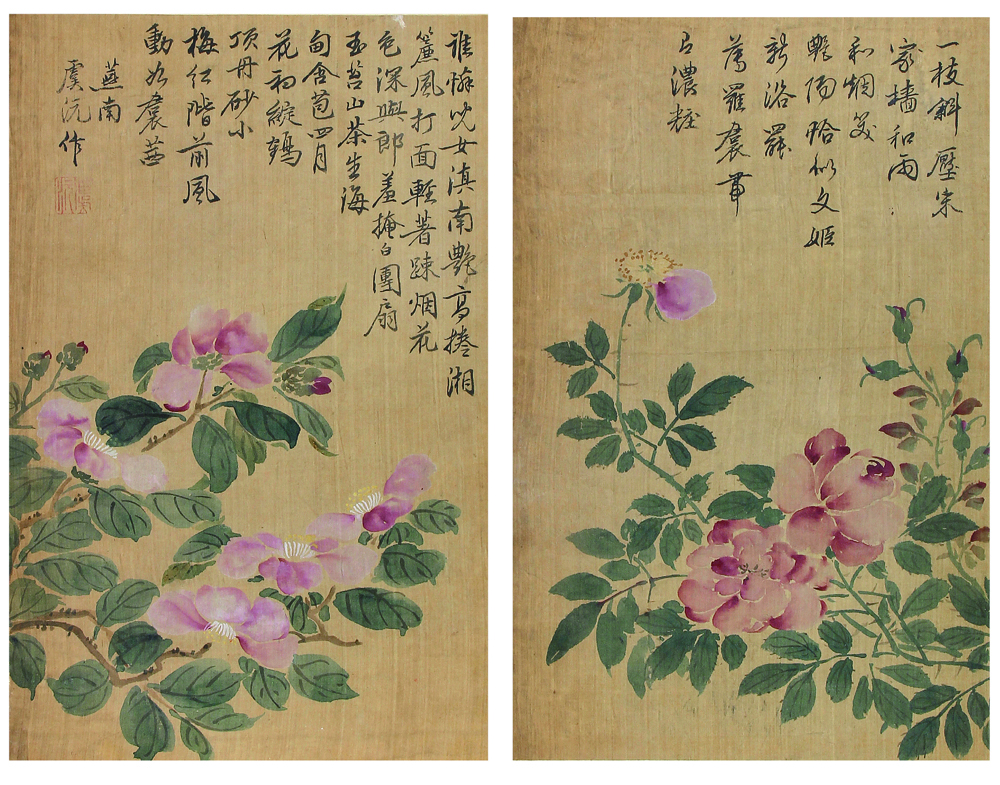 一枝斜壓宋
家墻和雨
和烟笑
艷陽恰似文姬
新浴罷
薄羅裠
占濃粧
誰憐兒女滇南艷高捲湘
簾風打面輕著踈烟花
色深與郎羞掩白團扇
玉茗山茶生海
甸含苞四月
花初綻鶴
頂丹砂小
梅紅階前風
動如裠茜
燕南
虞沅作